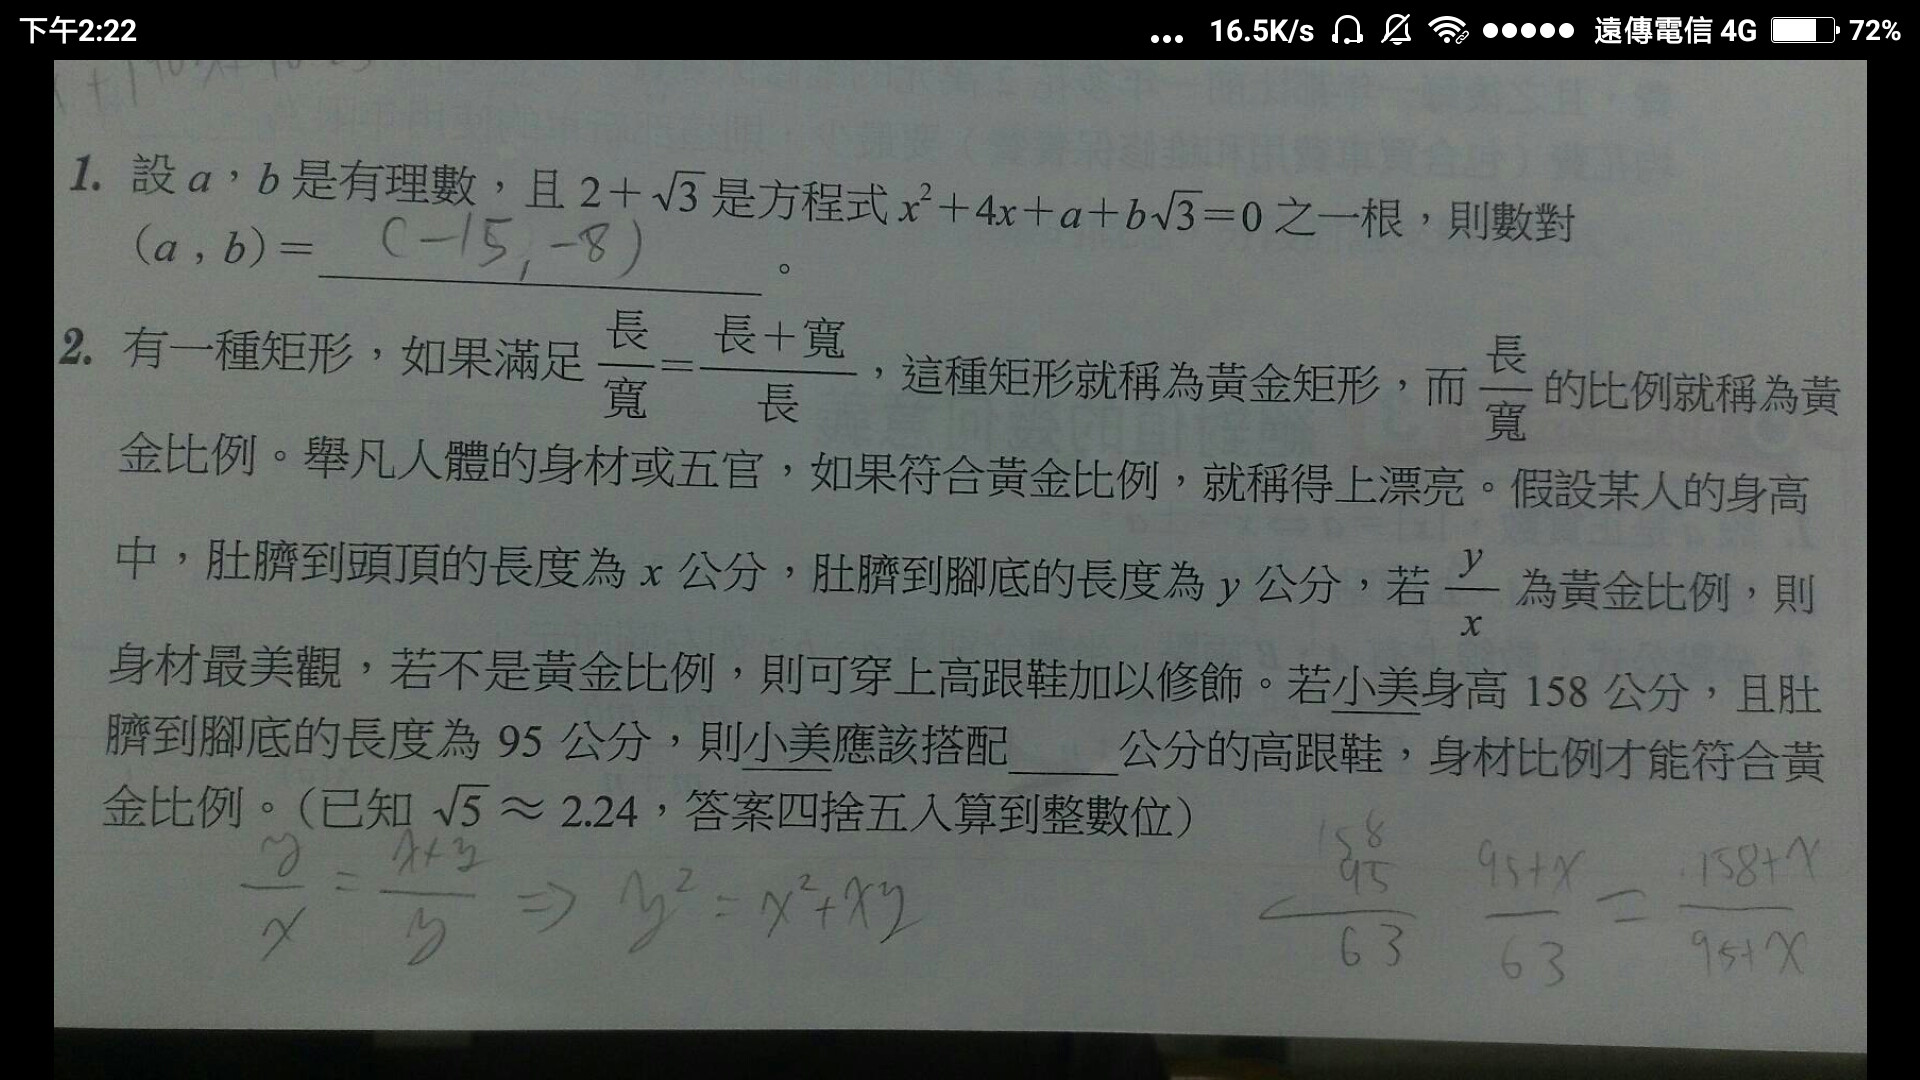 下午2:22
... 16.5K/s 遠傳電信 4G 72%
1. 設 a，b 是有理數，且 2+√3 是方程式 x²+4x+a+b√3=0 之一根，則數對
(a , b)= (-15, -8) 。
2. 有一種矩形，如果滿足 長/寬 = 長+寬/長 ，這種矩形就稱為黃金矩形，而 長/寬 的比例就稱為黃
金比例。舉凡人體的身材或五官，如果符合黃金比例，就稱得上漂亮。假設某人的身高
中，肚臍到頭頂的長度為 x 公分，肚臍到腳底的長度為 y 公分，若 y/x 為黃金比例，則
身材最美觀，若不是黃金比例，則可穿上高跟鞋加以修飾。若小美身高 158 公分，且肚
臍到腳底的長度為 95 公分，則小美應該搭配____公分的高跟鞋，身材比例才能符合黃
金比例。（已知 √5 ≈ 2.24，答案四捨五入算到整數位）
y/x = x+y/y ⇒ y² = x²+xy
158
95
63
95+x/63 = 158+x/95+x